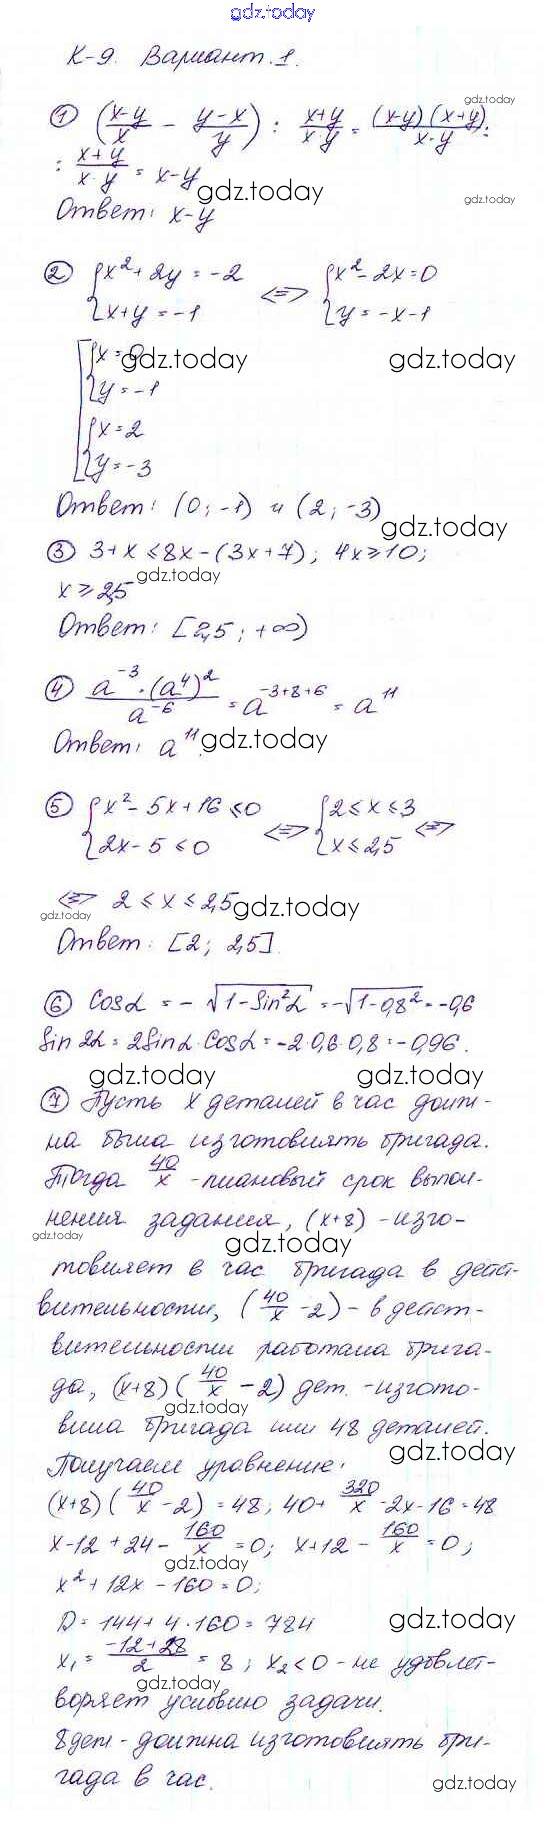 gdz.today
К-9. Вариант.1.
gdz.today
① ((x-y)/x - (y-x)/y) : (x+y)/(x·y) = (x-y)(x+y)/(x·y) :
: (x+y)/(x·y) = x-y
gdz.today gdz.today
Ответ: x-y
② {x²+2y=-2 <=> {x²-2x=0
{x+y=-1 {y=-x-1
[{x=0
gdz.today gdz.today
{y=-1
{x=2
{y=-3
Ответ: (0;-1) и (2;-3)
gdz.today
③ 3+x≤8x-(3x+7); 4x≥10;
gdz.today
x≥2,5
Ответ: [2,5;+∞)
④ a⁻³·(a⁴)²/a⁻⁶ = a⁻³⁺⁸⁺⁶ = a¹¹
Ответ: a¹¹.
gdz.today
⑤ {x²-5x+16≤0 <=> {2≤x≤3 <=>
{2x-5≤0 {x≤2,5
<=> 2≤x≤2,5
gdz.today gdz.today
Ответ: [2; 2,5].
⑥ Cosα=-√(1-Sin²α)=-√(1-0,8²)=-0,6
Sin2α=2Sinα·Cosα=-2·0,6·0,8=-0,96.
gdz.today gdz.today
⑦ Пусть x деталей в час долж-
на была изготовлять бригада.
Тогда 40/x -плановый срок выпол-
нения задания, (x+8) -изго-
gdz.today gdz.today
товляет в час бригада в дейст-
вительности, (40/x -2)- в дейст-
вительности работала брига-
да, (x+8)(40/x -2) дет. -изгото-
gdz.today
вила бригада или 48 деталей.
gdz.today
Получаем уравнение:
(x+8)(40/x -2)=48; 40+ 320/x -2x-16=48
x-12+24- 160/x =0; x+12- 160/x =0;
gdz.today
x²+12x-160=0;
D=144+4·160=784
gdz.today
x₁= (-12+28)/2 =8; x₂<0 -не удовлет-
gdz.today
воряет условию задачи.
8дет - должна изготовлять бри-
гада в час.
gdz.today